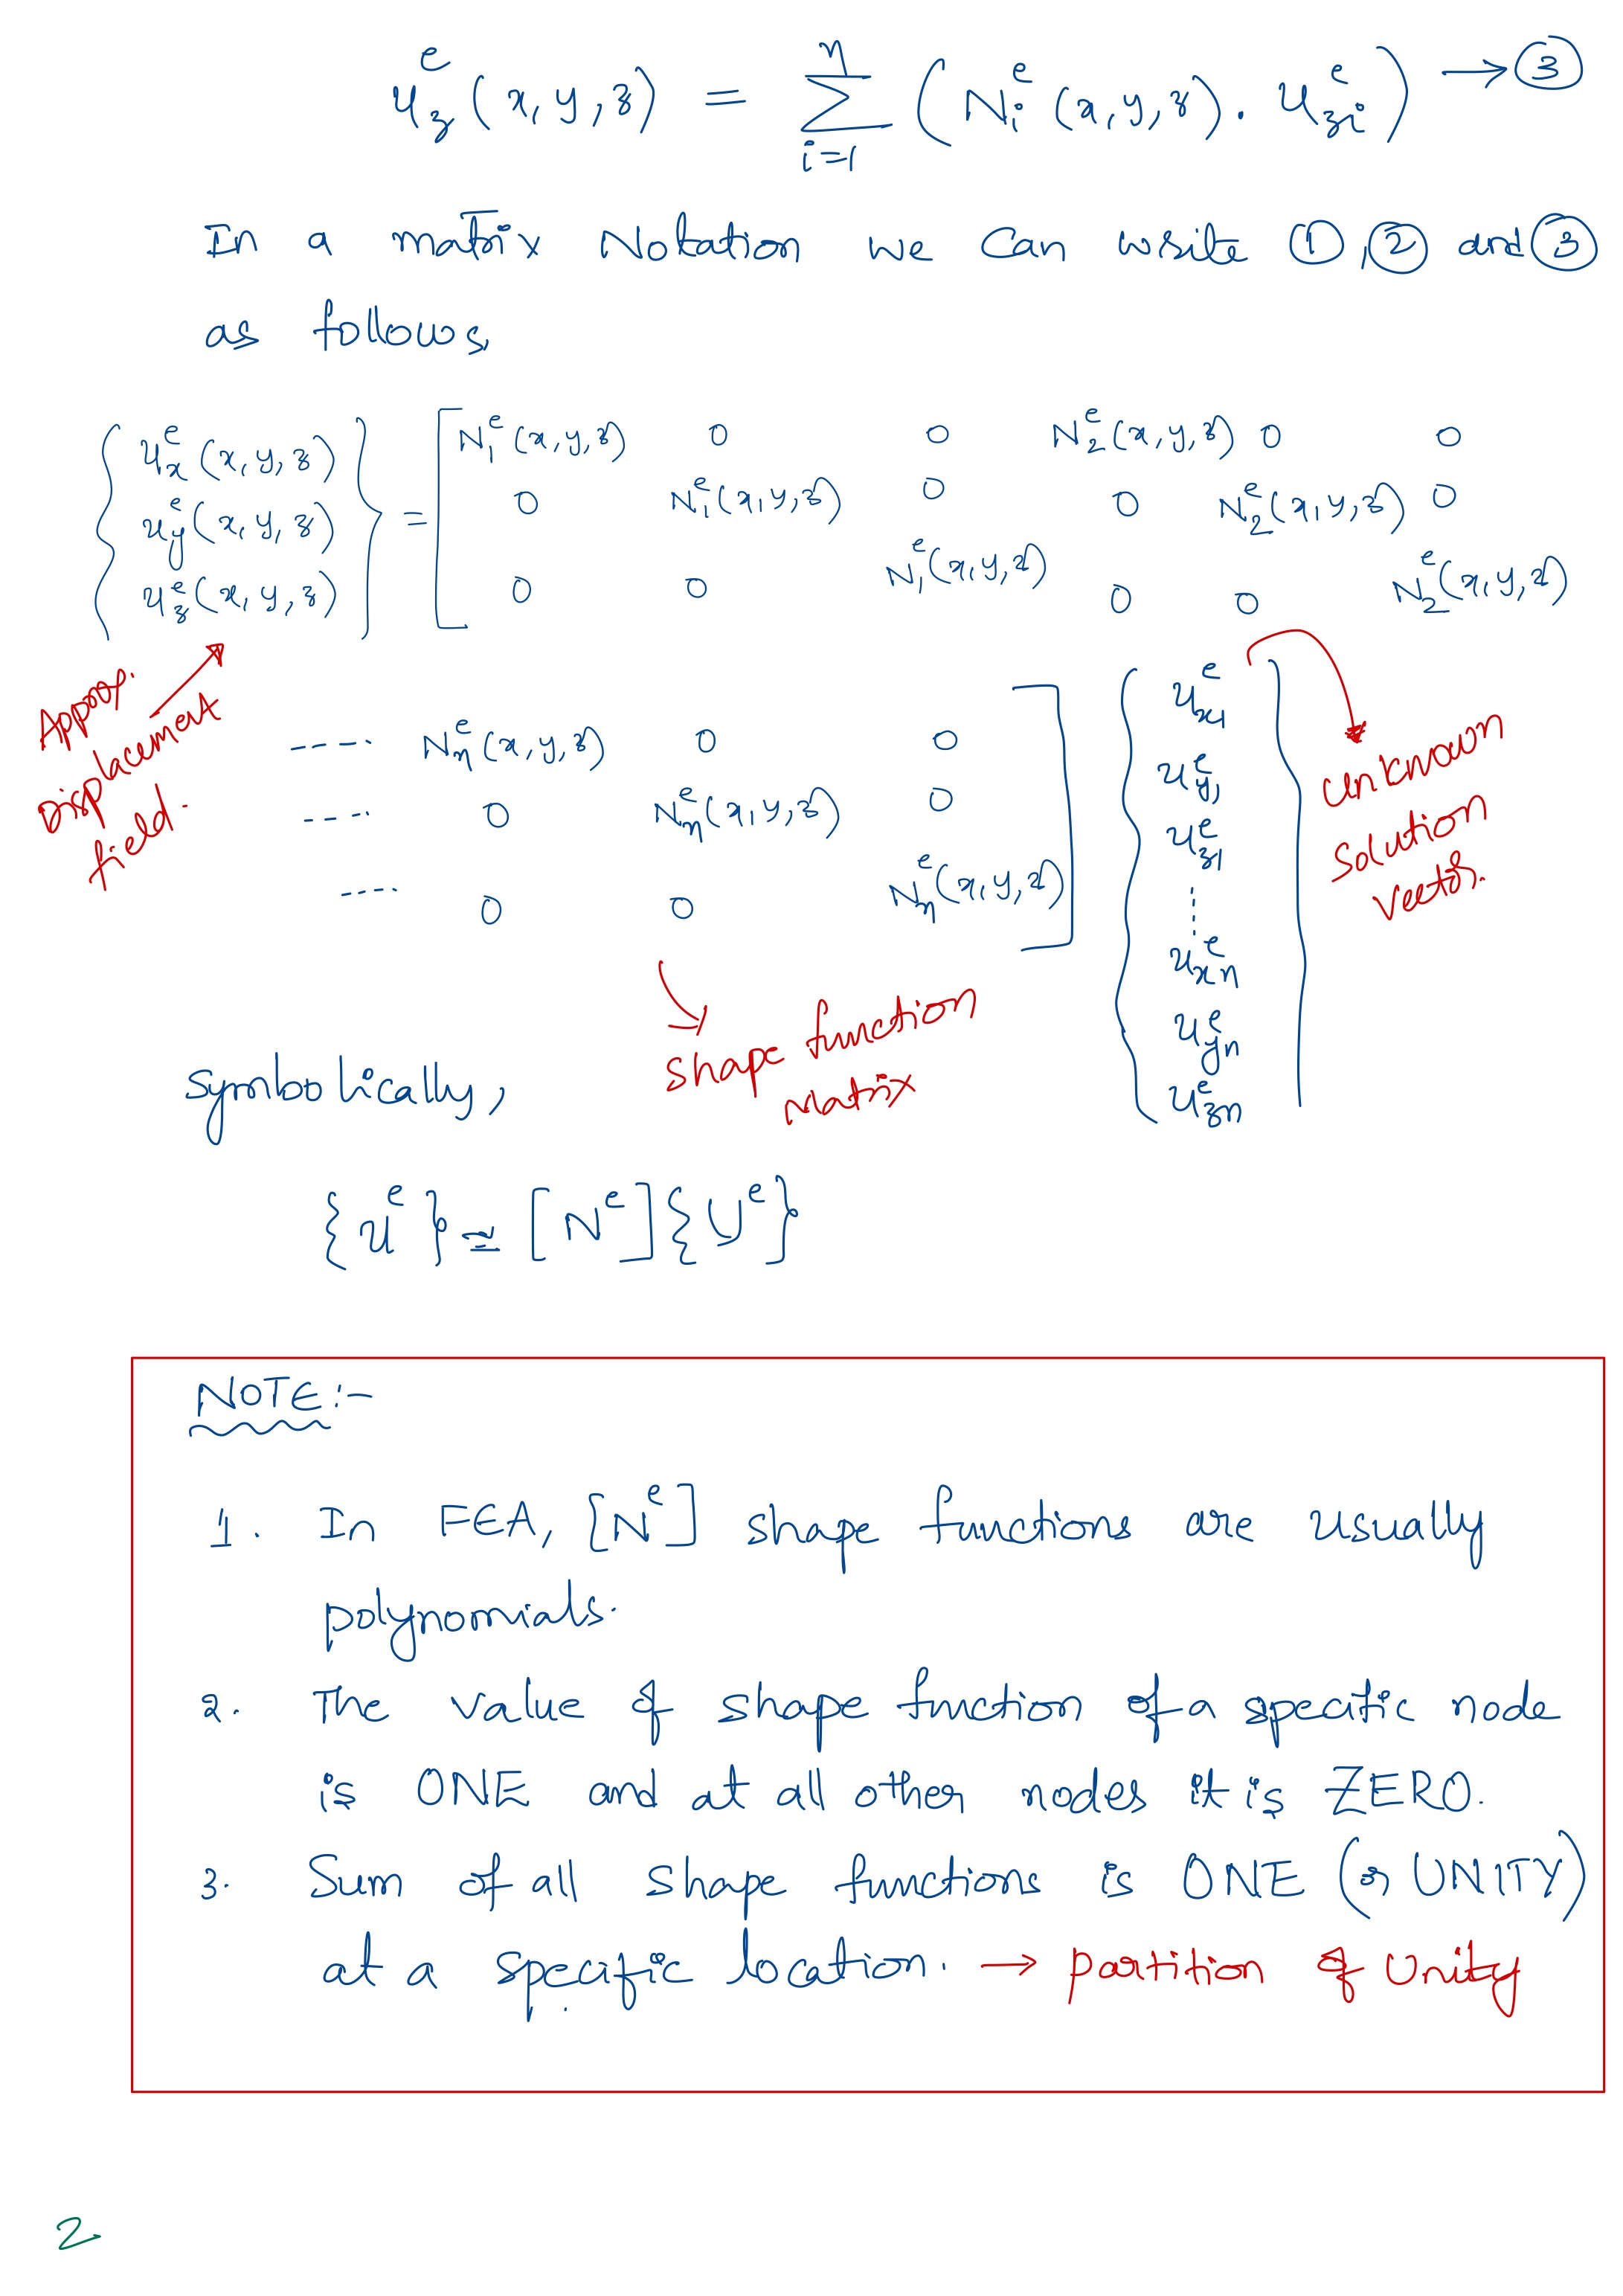 u_z^e (x, y, z) = Σ_{i=1}^{n} ( N_i^e (x, y, z) . u_{zi}^e ) → ③
In a matrix Notation we can write ①, ② and ③
as follows,
{ u_x^e (x, y, z) } = [ N_1^e (x, y, z) 0 0 N_2^e (x, y, z) 0 0
{ u_y^e (x, y, z) } 0 N_1^e (x, y, z) 0 0 N_2^e (x, y, z) 0
{ u_z^e (x, y, z) } 0 0 N_1^e (x, y, z) 0 0 N_2^e (x, y, z)
Approx.
Displacement
field.
----- N_n^e (x, y, z) 0 0 ]
----- 0 N_n^e (x, y, z) 0
----- 0 0 N_n^e (x, y, z)
{ u_{x1}^e
u_{y1}^e
u_{z1}^e
⋮
u_{xn}^e
u_{yn}^e
u_{zn}^e }
Unknown
Solution
Vector.
shape function
Matrix
Symbolically,
{u^e} ≃ [N^e]{U^e}
NOTE:-
1. In FEA, [N^e] shape functions are usually
polynomials.
2. The value of shape function of a specific node
is ONE and at all other nodes it is ZERO.
3. Sum of all shape functions is ONE (or UNITY)
at a specific location. → Partition of Unity
2